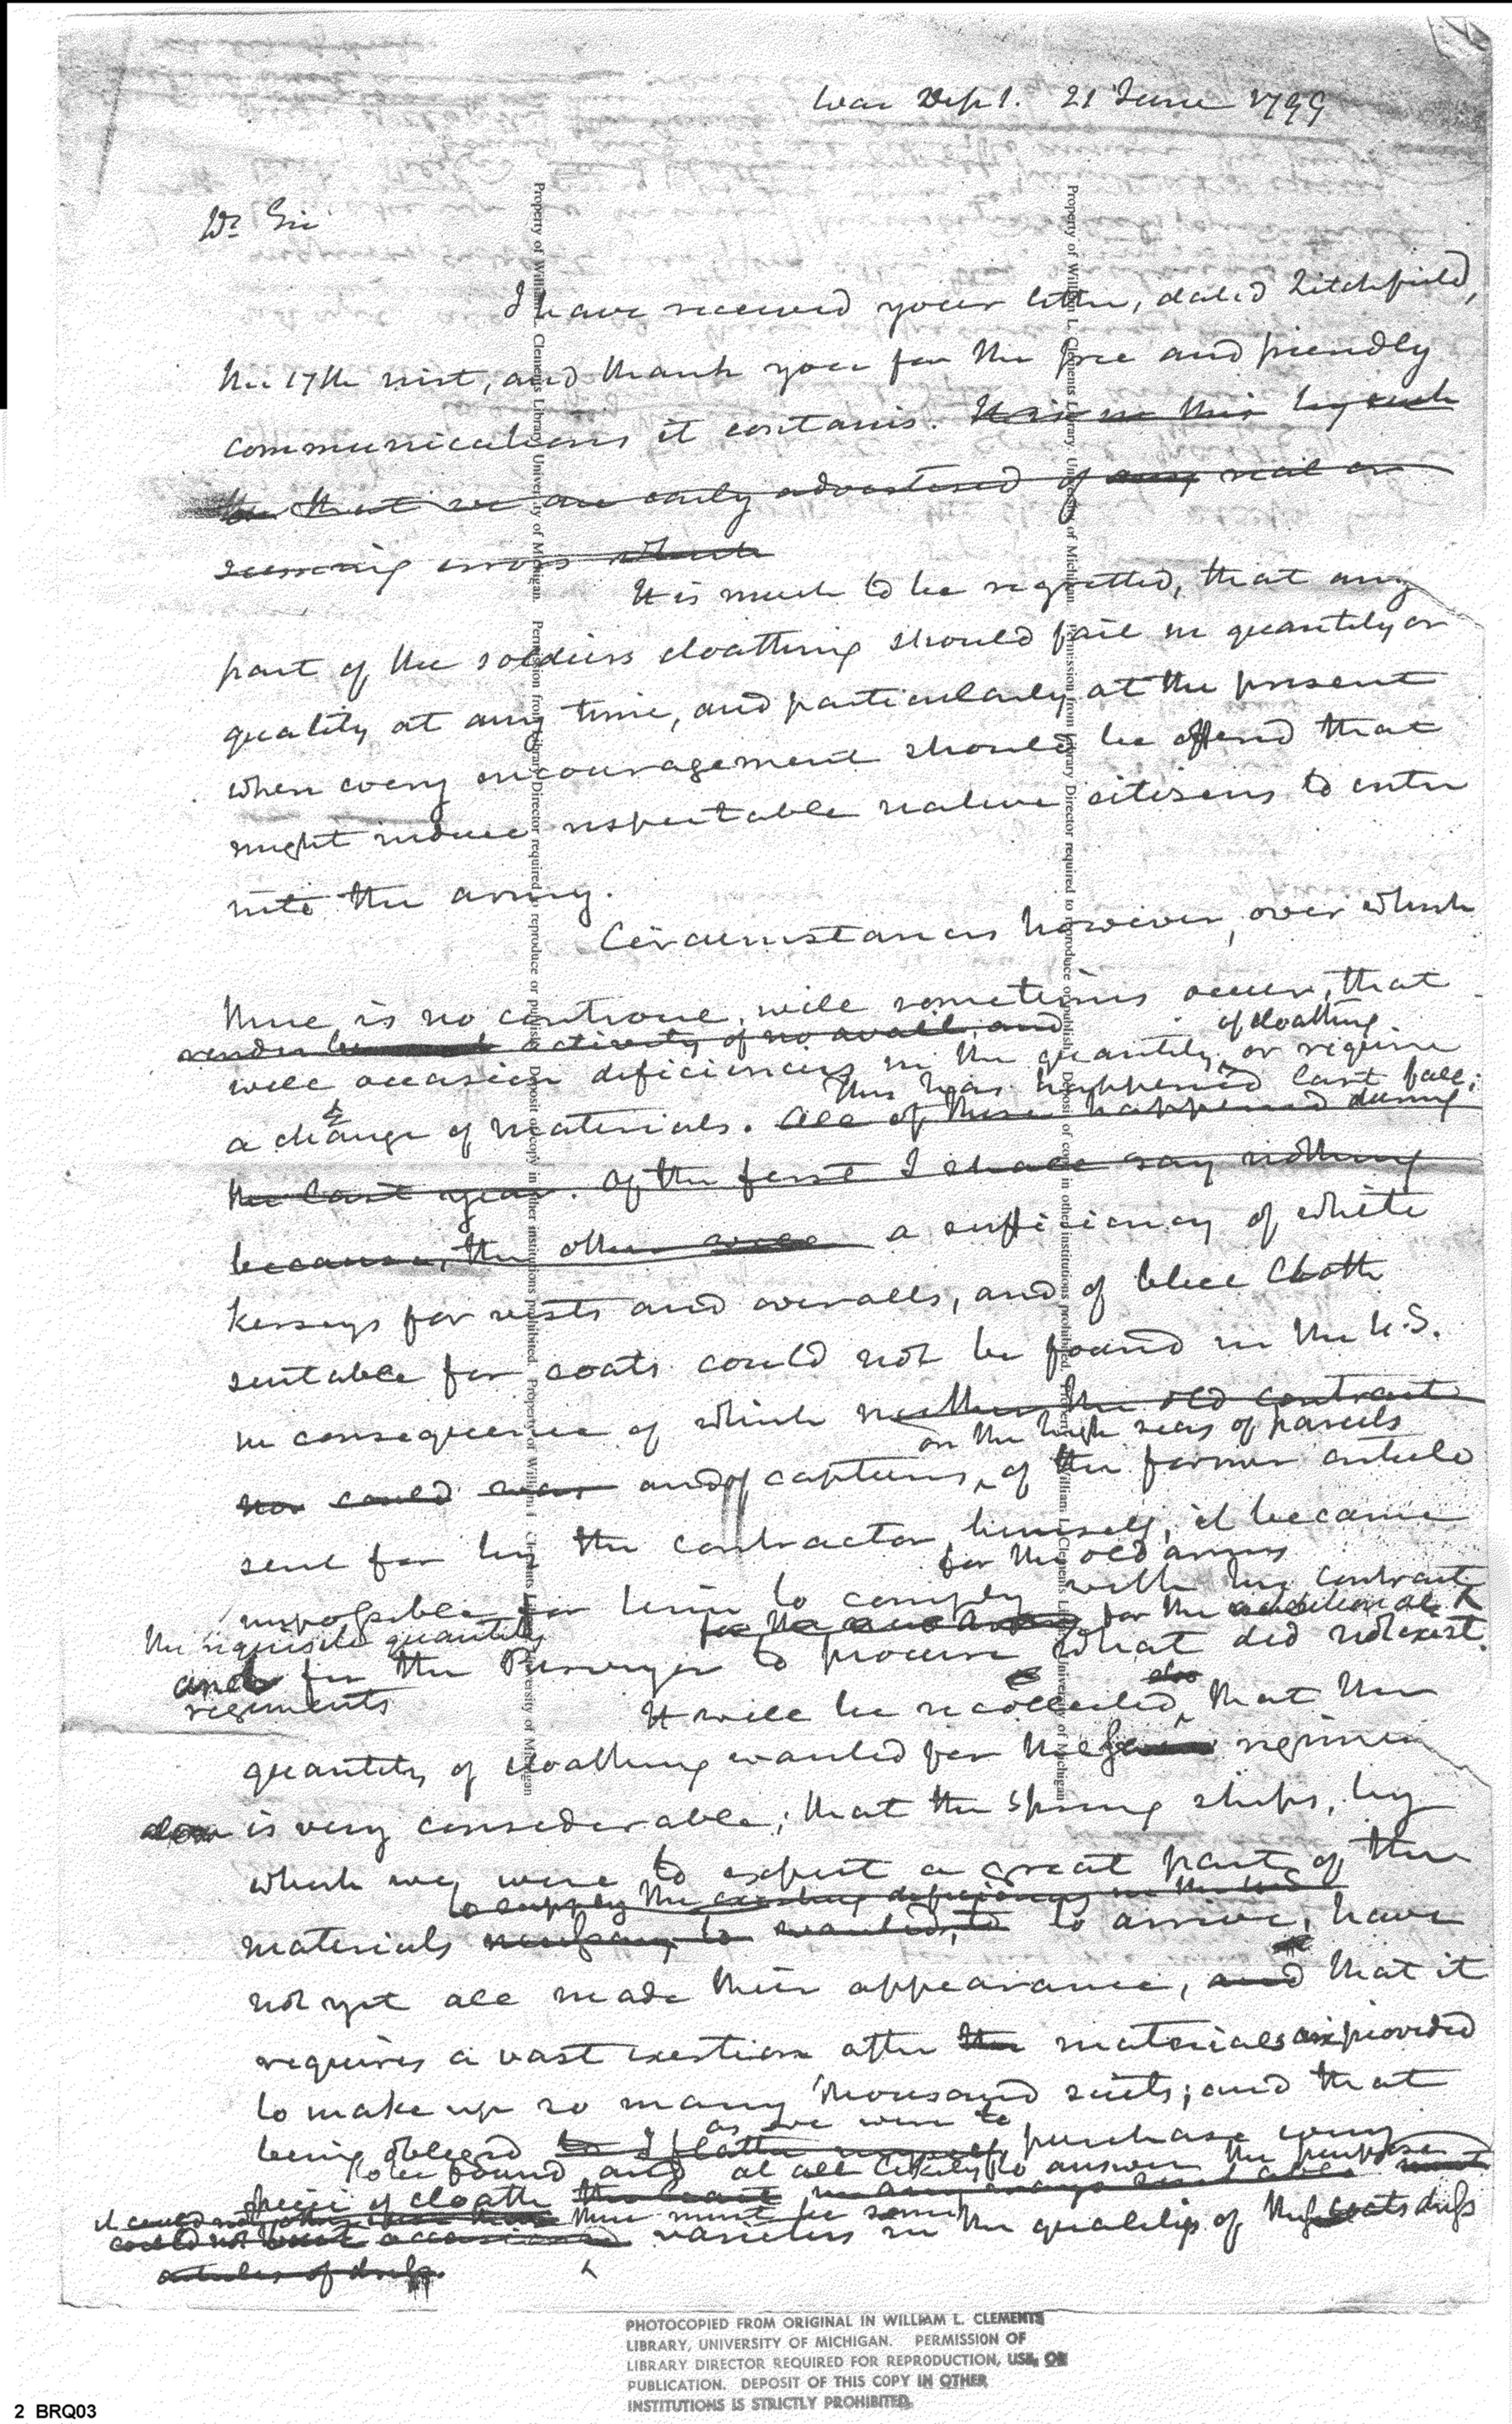 War Dept. 21 June 1799
Dr Sir
I have received your letter, dated Litchfield,
the 17th inst, and thank you for the free and friendly
communications it contains. It is in this by such
that we are early advertised of any real or
seeming errors which
It is much to be regretted, that any
part of the soldiers cloathing should fail in quantity or
quality at any time, and particularly at the present
when every encouragement should be offered that
might induce respectable native citizens to enter
into the army.
Circumstances however, over which
there is no controul, will sometimes occur, that
render activity of no avail, and of cloathing.
will occasion deficiencies in the quantity, or require
This has happened last fall;
a change of materials. All of these happened during
the last year. Of the first I shall say nothing
because, the other a sufficiency of white
kerseys for vests and overalls, and of blue Cloth
suitable for coats could not be found in the U.S.
in consequence of which neither the old contract
on the high seas of parcels
nor could and of captures, of the former article
sent for by the contractor himself, it became
for the old army
impossible for him to comply with his contract
the requisite quantity for the additional
and for the Purveyor to procure what did not exist.
regiments
It will be recollected, also that the
quantity of cloathing wanted for these regimen
is very considerable; that the Spring ships, by
which we were to expect a great part of the
to supply the existing deficiency in the U S
materials necessary to wanted, to to arrive, have
not yet all made their appearance, and that it
requires a vast exertion after the materials are provided
to make up so many thousand suits; and that
as we were to
being obliged to I flatter myself, purchase every
to be found and at all likely to answer the purpose
piece of cloath
there must be some
could not but occasioned varieties in the quality of the coats dress
articles of dress.
Property of William L. Clements Library, University of Michigan. Permission from Library Director required to reproduce or publish. Deposit of copy in other institutions prohibited. Property of William L. Clements Library, University of Michigan
Property of William L. Clements Library, University of Michigan. Permission from Library Director required to reproduce or publish. Deposit of copy in other institutions prohibited. Property of William L. Clements Library, University of Michigan
PHOTOCOPIED FROM ORIGINAL IN WILLIAM L. CLEMENTS
LIBRARY, UNIVERSITY OF MICHIGAN. PERMISSION OF
LIBRARY DIRECTOR REQUIRED FOR REPRODUCTION, USE, OR
PUBLICATION. DEPOSIT OF THIS COPY IN OTHER
INSTITUTIONS IS STRICTLY PROHIBITED.
2 BRQ03